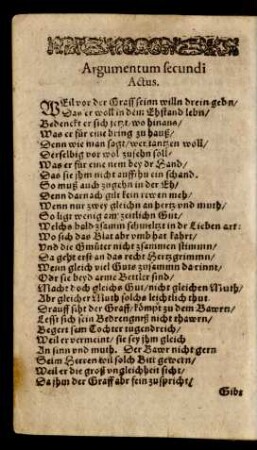 Argumentum secundi
Actus.
WEil vor der Graff seinn willn drein gebn/
Das er woll in dem Ehstand lebn/
Bedenckt er sich jetzt wo hinans/
Was er für eine bring zu hauß/
Denn wie man sagt/ wer tantzen woll/
Derselbig vor wol zusehn soll/
Was er für eine nem bey de Hand/
Das sie jhm nicht auffthu ein schand.
So muß auch zugehn in der Eh/
Denn darnach gilt kein rewen meh/
Wenn nur zwey gleich an hertz vnd muth/
So ligt wenig am zeitlichn Gut/
Welchs bald zsamn schmeltzt in die Lieben art:
Wo sich das Blat abr vmb hat kahrt/
Vnd die Gmüter nicht zsammen stimmn/
Da geht erst an das recht Hertzgrimmn/
Wenn gleich viel Guts zusamm da rinnt/
Odr sie beyd arme Bettler sind/
Macht doch gleichs Gut/ nicht gleichen Muth/
Abr gleicher Muth solchs leichtlich thut.
Drauff siht der Graff/ kömpt zu dem Bawrn/
Lesst sich sein Bedrengnß nicht thawrn/
Begert sam Tochter tugendreich/
Weil er vermeint/ sie sey jhm gleich
An sinn vnd muth. Der Bawr nicht gern
Seim Herren wil solch Bitt gewern/
Weil er die groß vngleichheit sicht/
Da jhm der Graff abr sein zuspricht/
Gibt